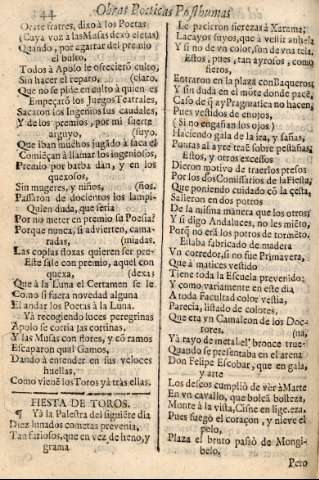 44
Obras Poeticas Posthumas
Orate fratres, dixò à los Poetas
(Cuya voz à las Musas dexò quietas)
Quando, por agartar del premio
el bulto,
Todos à Apolo le ofreciero culto,
Sin hacer el reparo, (claro.
Que no se pide en culto à quien es
Empeçarõ los Juegos Teatrales,
Sacaron los Ingenios sus caudales,
Y de los premios, por mi suerte
arguyo, (suyo.
Que iban muchos jugãdo à faca el
Comieçan à llamar los ingeniosos,
Premio por barba dan, y en los
quexosos,
Sin mugeres, y niños, (ños.
Passaron de docientos los lampi-
Quien duda, que seria
Por no meter en premio su Poesia?
Porque nunca, si advierten, cama-
radas, (miadas.
Las coplas floxas quieren ser pre-
Este sale con premio, aquel con
quexa, (dexa:
Que à la Luna el Certamen se le
Como si fuera novedad alguna
El andar los Poetas à la Luna.
Yà recogiendo luces peregrinas
Apolo se corriò las cortinas.
Y las Musas con flores, y cõ ramos
Escaparon qual Gamos,
Dando à entender en sus veloces
huellas,
Como vienẽ los Toros yà tràs ellas.
FIESTA DE TOROS.
¶ Yà la Palestra del siguiẽte dia
Diez lunados cometas prevenia,
Tan furiosos, que en vez de heno, y
grama
Le pacieron fierezas à Xarama;
Lacayos suyos, que à vestir anhela
Y si no de vn color, son de vna tela.
Estos, pues, tan ayrosos, como
fieros,
Entraron en la plaza con Baqueros
Y sin duda en el mote donde pacẽ,
Caso de q̃ ay Pragmatica no hacen,
Pues vestidos de enojos,
(Si no engañan los ojos)
Haciendo gala de la ira, y sañas,
Puntas al ayre traẽ sobre pestañas.
Estos, y otros excessos
Dieron motivo de traerlos presos
Por los dos Comissarios de la Fiesta,
Que poniendo cuidado cõ la çesta,
Salieron en dos potros
De la misma manera que los otros;
Y si digo Andaluces, no les mietõ,
Porq̃ no erã los potros de tormẽto.
Estaba fabricado de madera
Vn corredor, si no fue Primavera,
Que à matices vestido
Tiene toda la Escuela prevenido;
Y como variamente en este dia
A toda Facultad color vestia,
Parecia, listado de colores,
Que era vn Camaleon de los Doc-
tores. (na,
Yà rayo de metal el bronce true-
Quando se presentaba en el arena
Don Felipe Escobar, que en gala,
y arte
Los deseos cumpliò de vèr à Marte
En vn cavallo, que bolcã bolteza,
Monte à la vista, Cisne en ligereza.
Pues fuego el coraçon, y nieve el
pelo,
Plaza el bruto passò de Mongi-
belo,
Pero